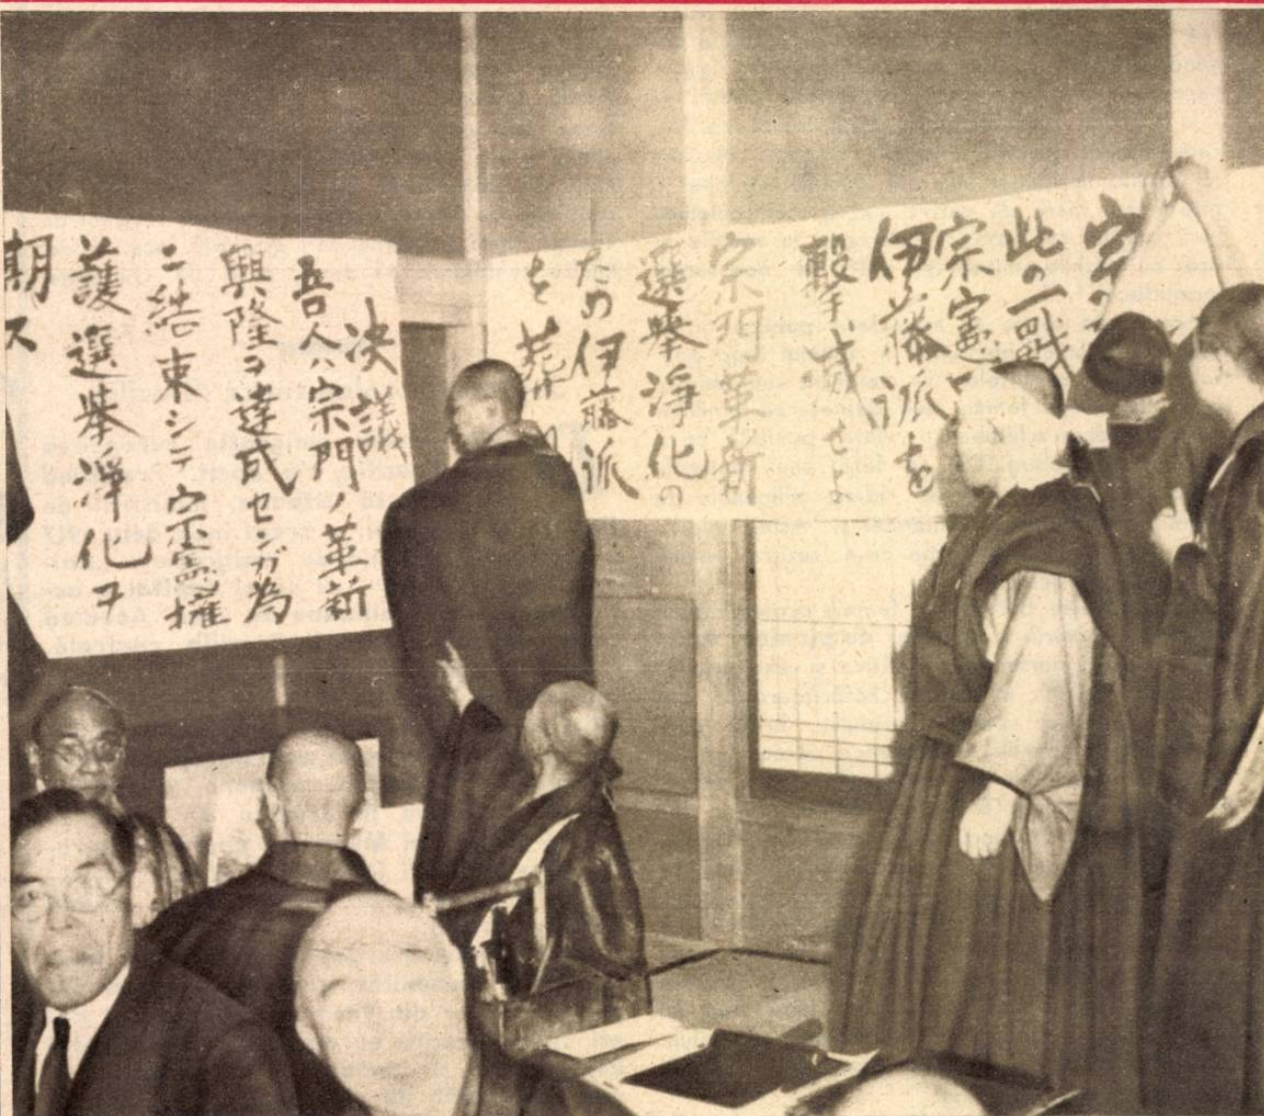 宗
此の一戰
宗憲
伊藤派を
撃滅せよ
宗門革新
選挙淨化の
ため伊藤派
を葬
決議
吾人ハ宗門ノ革新
興隆ヲ達成センガ為
ニ結束シテ宗憲擁
護選挙淨化ヲ
期ス